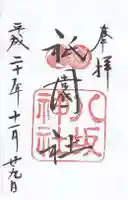 奉拝
祇園社
八坂神社
平成二十年十一月廿九日